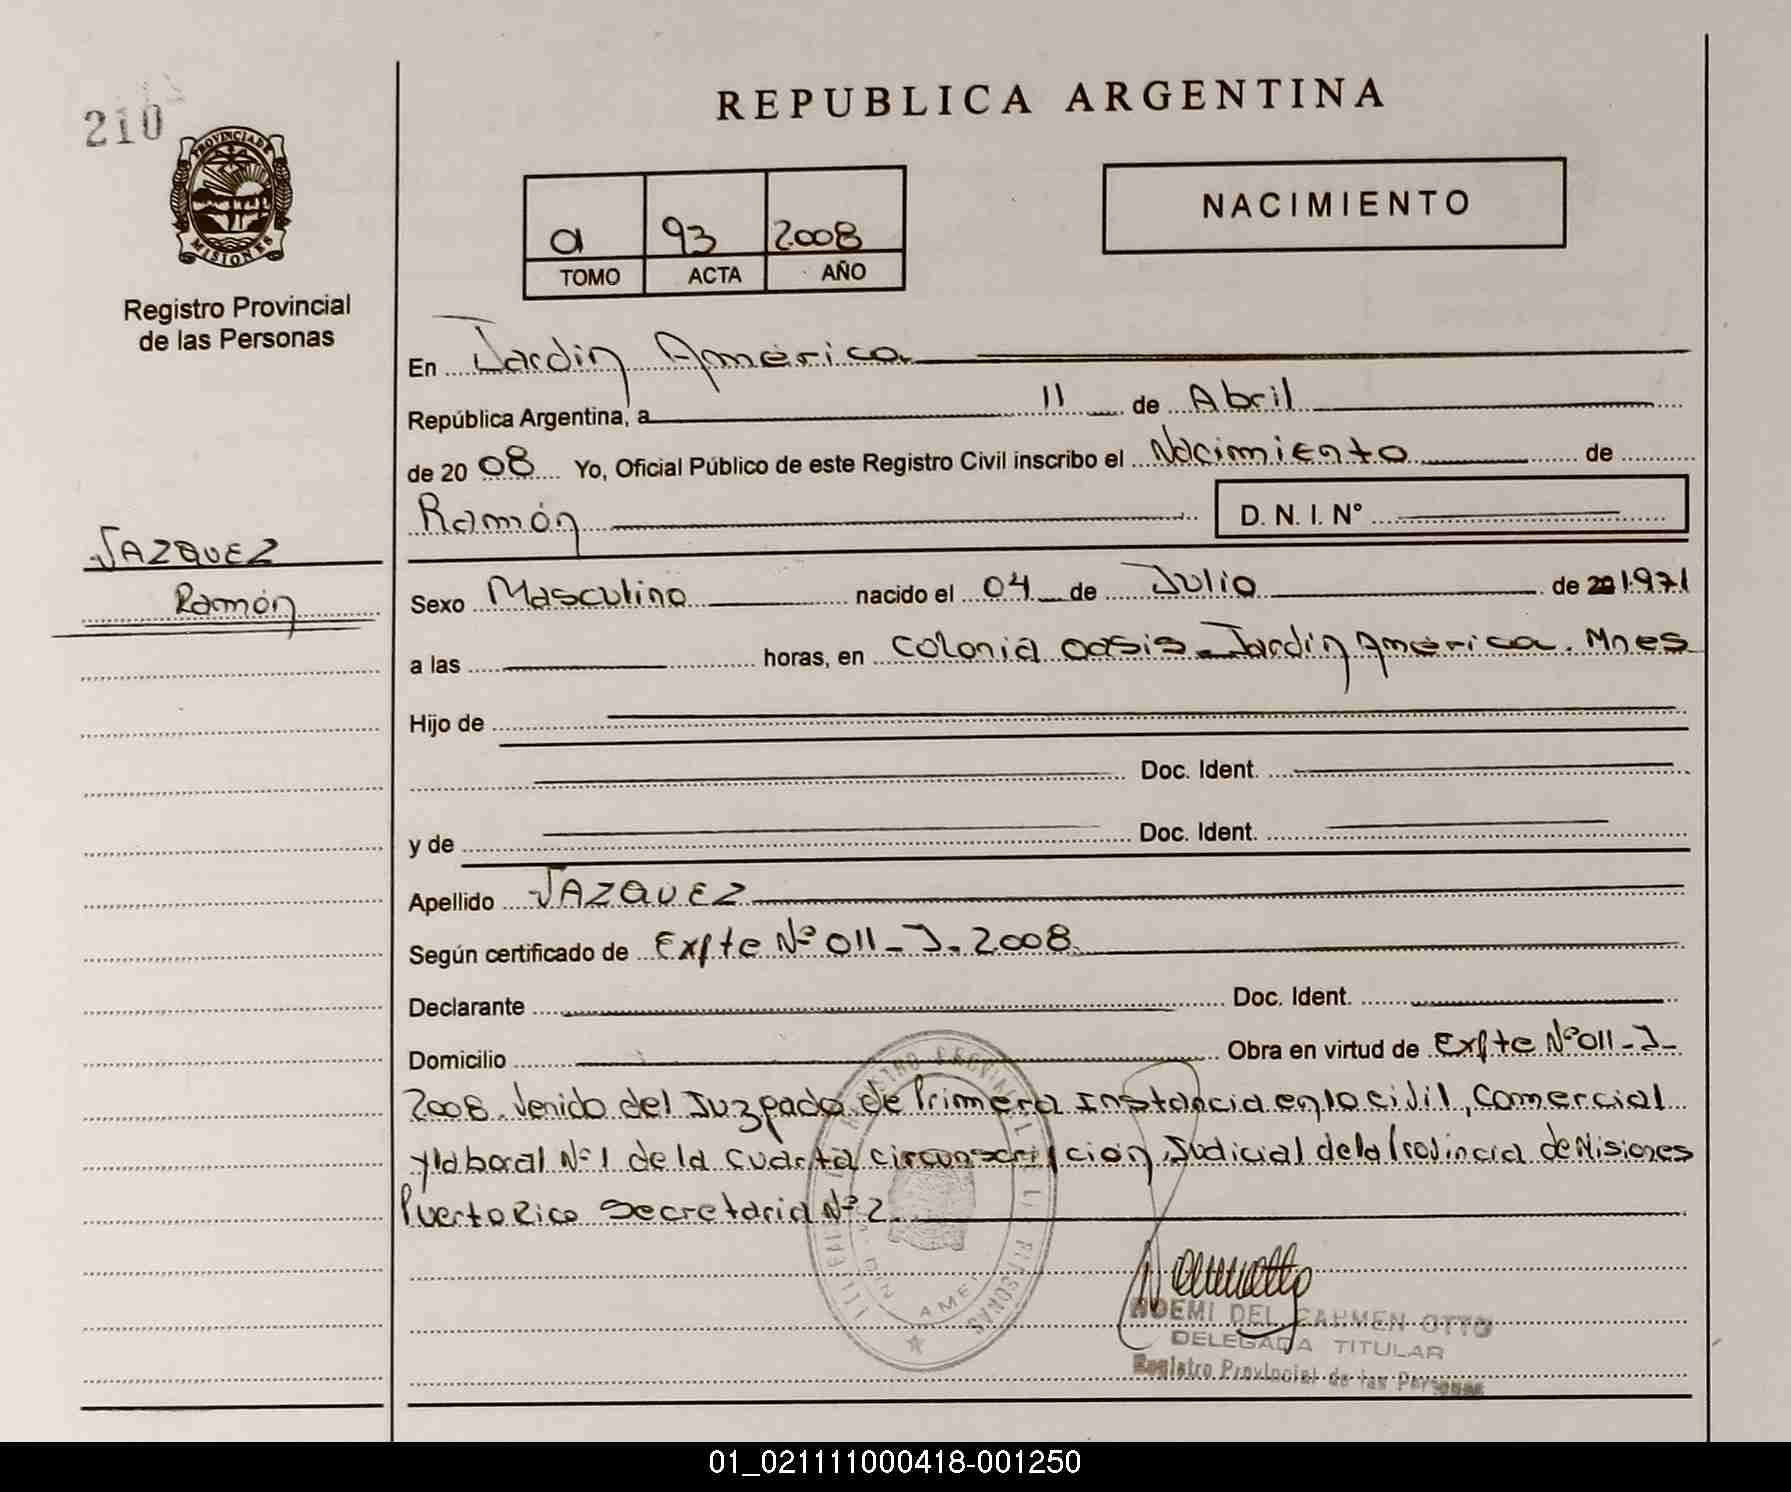 210
PROVINCIA DE
MISIONES
Registro Provincial
de las Personas
REPUBLICA ARGENTINA
a 93 2008
TOMO ACTA AÑO
NACIMIENTO
En Jardin América
República Argentina, a 11 de Abril
de 20 08 Yo, Oficial Público de este Registro Civil inscribo el Nacimiento de
Ramón D. N. I. N°
VAZQUEZ
Ramón
Sexo Masculino nacido el 04 de Julio de 1971
a las horas, en Colonia oasis - Jardin América. Mnes
Hijo de
Doc. Ident.
y de Doc. Ident.
Apellido VAZQUEZ
Según certificado de Expte Nº 011-J-2008.
Declarante Doc. Ident.
Domicilio Obra en virtud de Expte Nº 011-J-
2008. Venido del Juzgado de Primera Instancia en lo civil, Comercial
y laboral Nº 1 de la Cuarta circunscripcion Judicial de la Provincia de Misiones
Puerto Rico Secretaria Nº 2.
NOEMI DEL CARMEN OTTO
DELEGADA TITULAR
Registro Provincial de las Personas
01_021111000418-001250